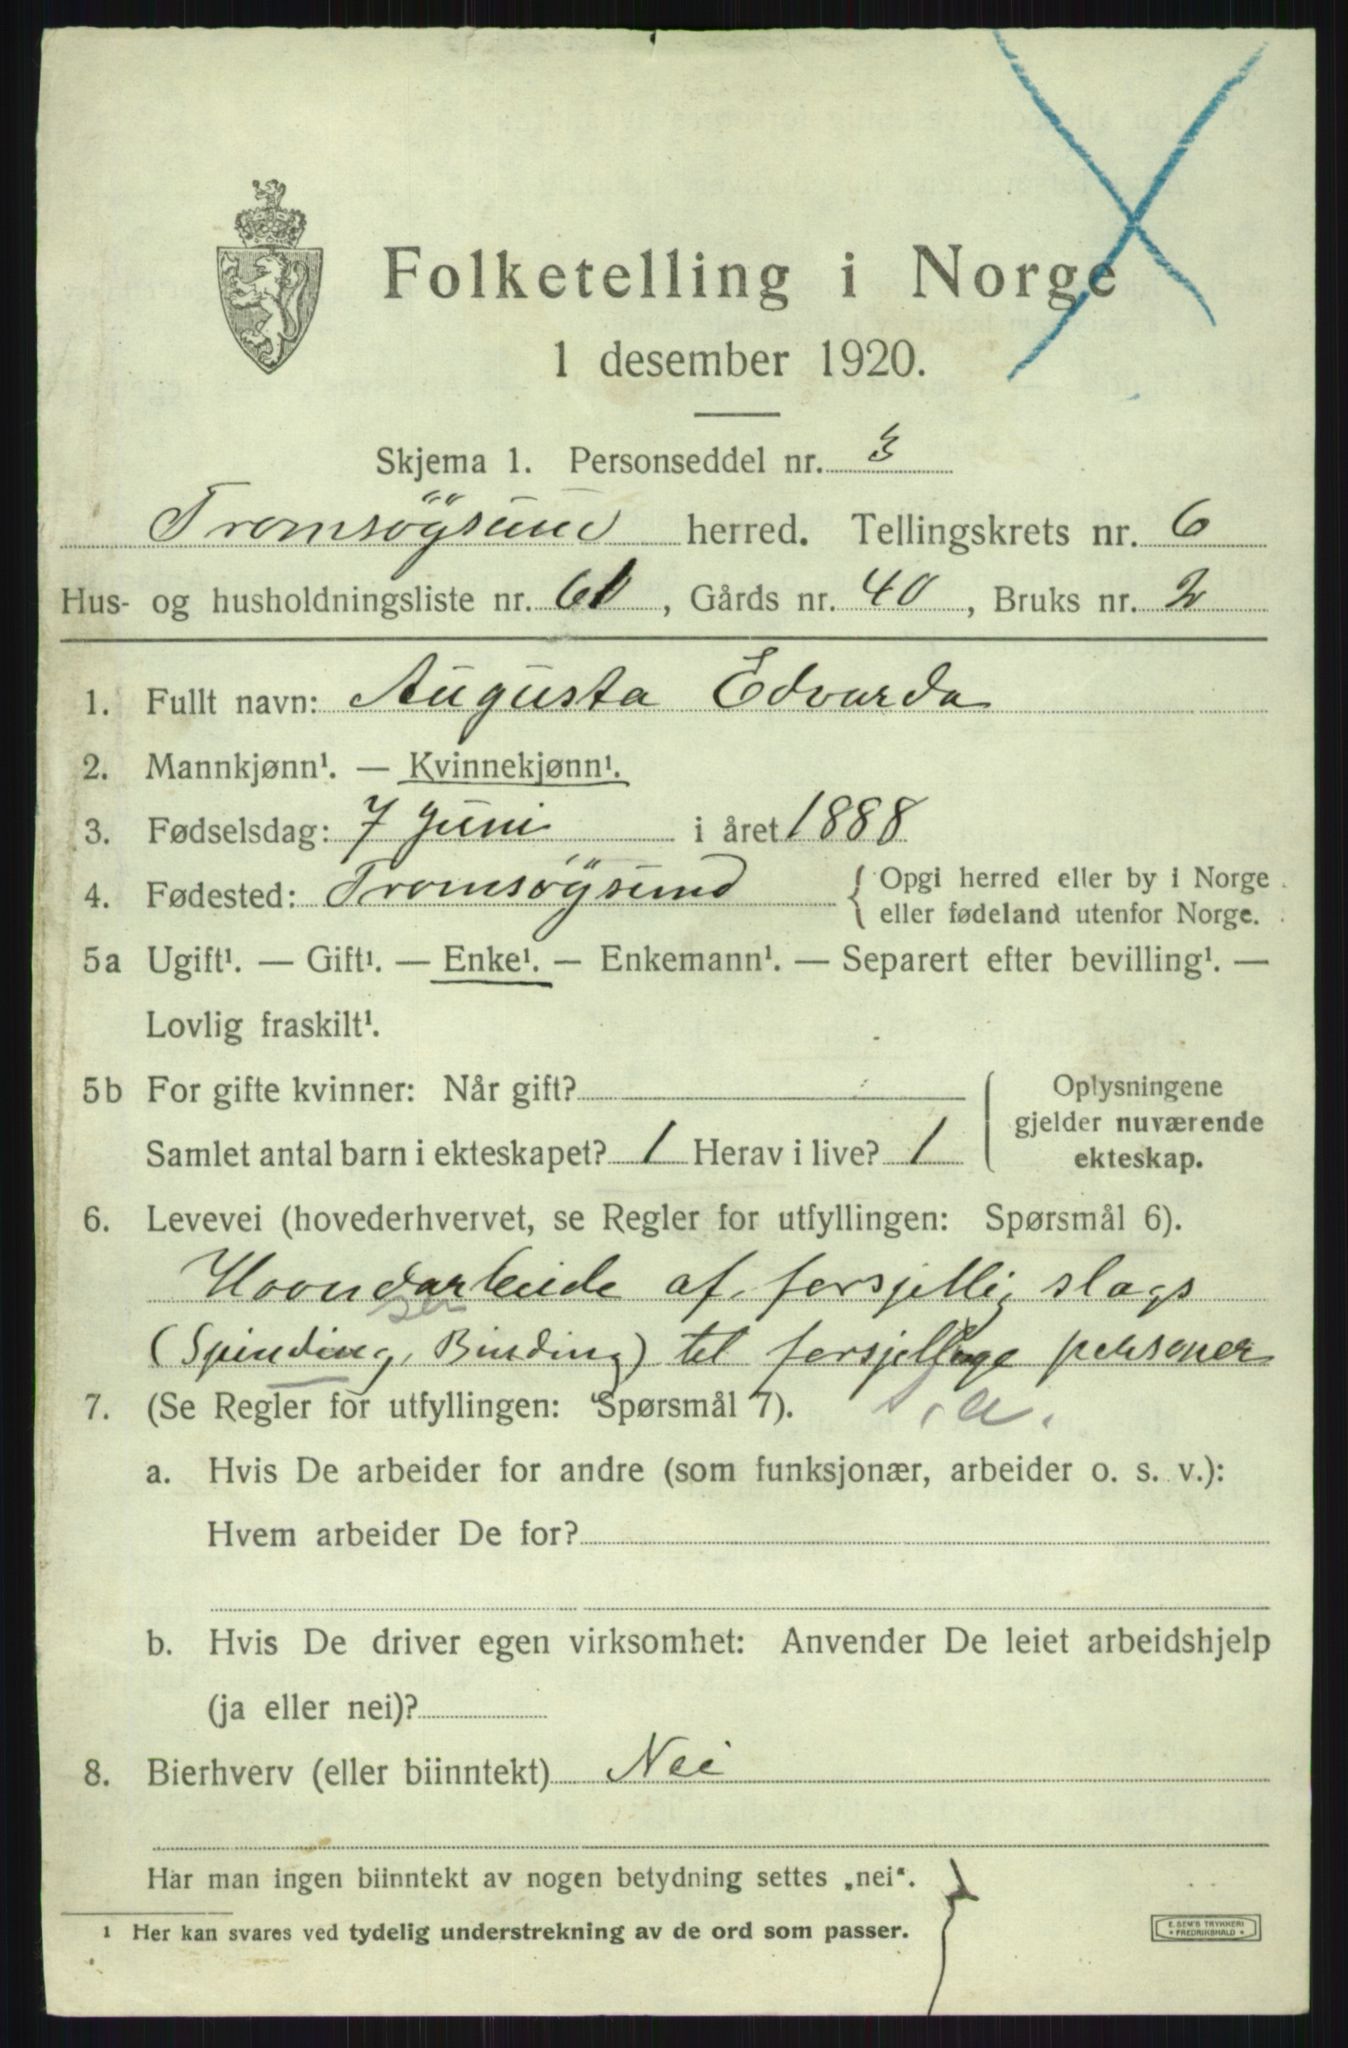 Folketelling i Norge
1 desember 1920.
Skjema 1. Personseddel nr. 3
Tromsøysund herred. Tellingskrets nr. 6
Hus- og husholdningsliste nr. 61, Gårds nr. 40, Bruks nr. 2
1. Fullt navn: Augusta Edvarda
2. Mannkjønn¹. — Kvinnekjønn¹.
3. Fødselsdag: 7 juni i året 1888
4. Fødested: Tromsøysund { Opgi herred eller by i Norge
eller fødeland utenfor Norge.
5a Ugift¹. — Gift¹. — Enke¹. — Enkemann¹. — Separert efter bevilling¹. —
Lovlig fraskilt¹.
5b For gifte kvinner: Når gift?
Samlet antal barn i ekteskapet? 1 Herav i live? 1
{ Oplysningene
gjelder nuværende
ekteskap.
6. Levevei (hovederhvervet, se Regler for utfyllingen: Spørsmål 6).
Haandarbeide af forsjellig slags
(Spinding, Binding) til forsjellige personer
7. (Se Regler for utfyllingen: Spørsmål 7). a.
a. Hvis De arbeider for andre (som funksjonær, arbeider o. s. v.):
Hvem arbeider De for?
b. Hvis De driver egen virksomhet: Anvender De leiet arbeidshjelp
(ja eller nei)?
8. Bierhverv (eller biinntekt) Nei
Har man ingen biinntekt av nogen betydning settes „nei“.
¹ Her kan svares ved tydelig understrekning av de ord som passer.
E. SEM'S TRYKKERI
FREDRIKSHALD